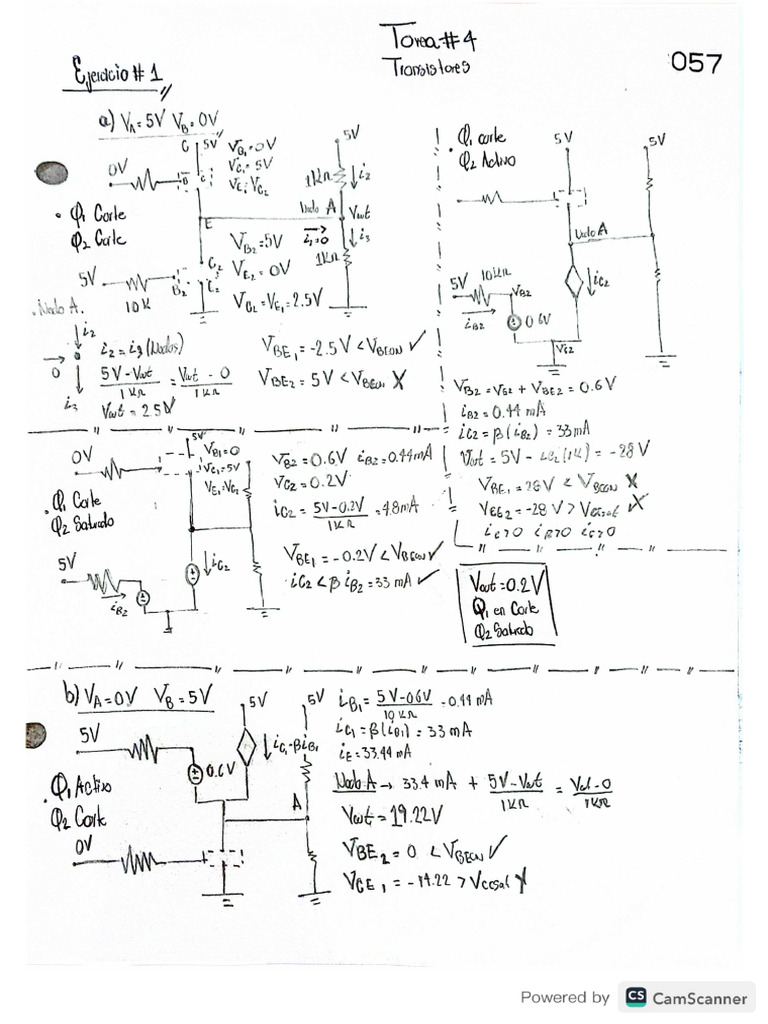 Tarea #4
Transistores
057
Ejercicio #1
a) VA=5V VB=0V
C
5V
VB1=0V
VC1=5V
VE1=VC2
0V
B
C
5V
1KΩ
i2
Nodo A
Vout
i1=0
i3
1KΩ
• Q1 Corte
Q2 Corte
E
VB2=5V
VE2=0V
VC2=VE1=2.5V
5V
10K
B2
C2
E2
.Nodo A.
i2
0
i3
i2=i3 (Nodos)
5V-Vout/1KΩ = Vout-0/1KΩ
Vout=2.5V
VBE1=-2.5V<VBEON ✓
VBE2=5V<VBEON X
. Q1 corte
Q2 Activo
5V
5V
Nodo A
iC2
5V
10KΩ
VB2
iB2
0.6V
VE2
VB2=VE2+VBE2=0.6V
iB2=0.44mA
iC2=β(iB2)=33mA
Vout=5V-iC2(1K)=-28V
VBE1=28V<VBEON X
VCE2=-28V>VCEsat X
iC>0 iB>0 iE>0
0V
5V
VB1=0
VC1=5V
VE1=VC2
. Q1 Corte
Q2 Saturado
5V
iB2
iC2
VB2=0.6V iB2=0.44mA
VC2=0.2V
iC2=5V-0.2V/1KΩ=4.8mA
VBE1=-0.2V<VBEON ✓
iC2<βiB2=33mA ✓
Vout=0.2V
Q1 en Corte
Q2 Saturado
b) VA=0V VB=5V
5V
0.6V
5V
iC1=βiB1
5V
A
. Q1 Activo
Q2 Corte
0V
iB1=5V-0.6V/10KΩ=0.44mA
iC1=β(iB1)=33mA
iE=33.44mA
Nodo A → 33.4mA + 5V-Vout/1KΩ = Vout-0/1KΩ
Vout=19.22V
VBE2=0<VBEON ✓
VCE1=-14.22>VCEsat X
Powered by CS CamScanner